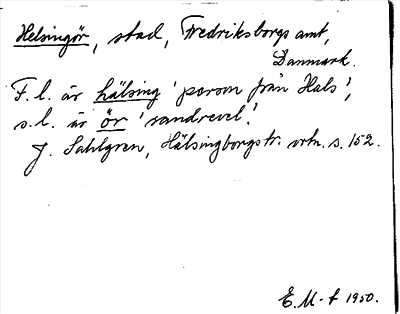 Helsingör, stad, Fredriksborgs amt,
Danmark.
F. l. är hälsing 'person från Hals',
s. l. är ör 'sandrevel'.
J. Sahlgren, Hälsingborgstr. ortn. s. 152.
E. M-t 1950.